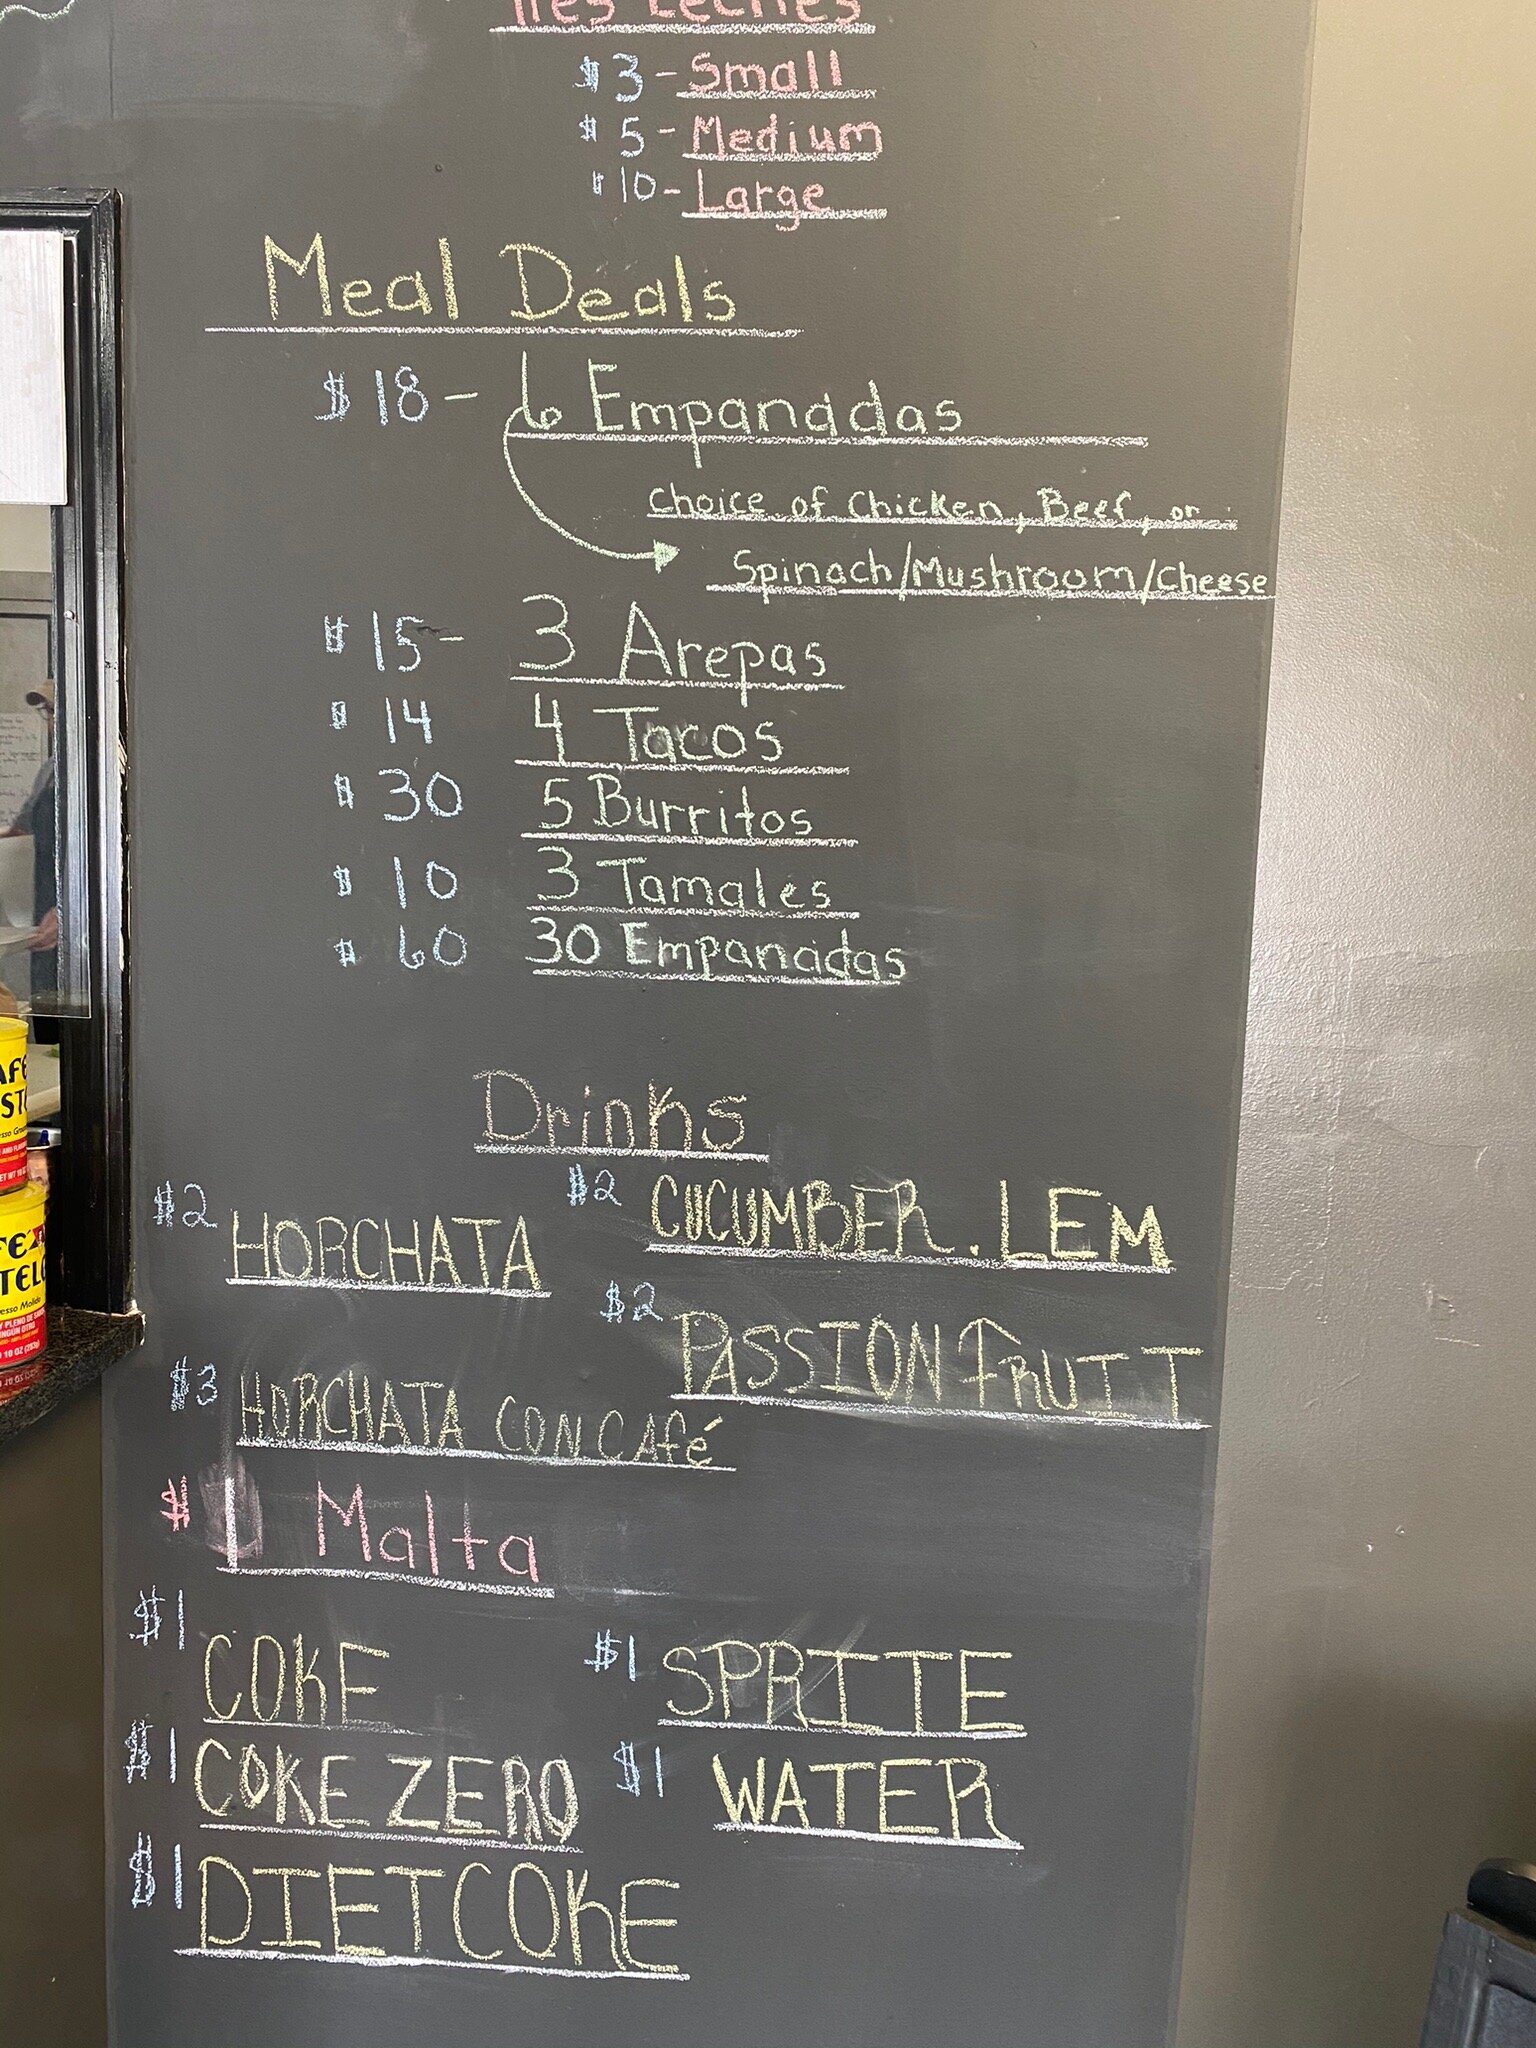 Tres Leches
$3-Small
$5-Medium
$10-Large
Meal Deals
$18- 6 Empanadas
Choice of Chicken, Beef, or
Spinach/Mushroom/Cheese
$15- 3 Arepas
$14 4 Tacos
$30 5 Burritos
$10 3 Tamales
$60 30 Empanadas
Drinks
$2 HORCHATA
$2 CUCUMBER.LEM
$2 PASSION FRUIT
$3 HORCHATA CON CAfé
$1 Malta
$1 COKE
$1 SPRITE
$1 COKE ZERO
$1 WATER
$1 DIET COKE